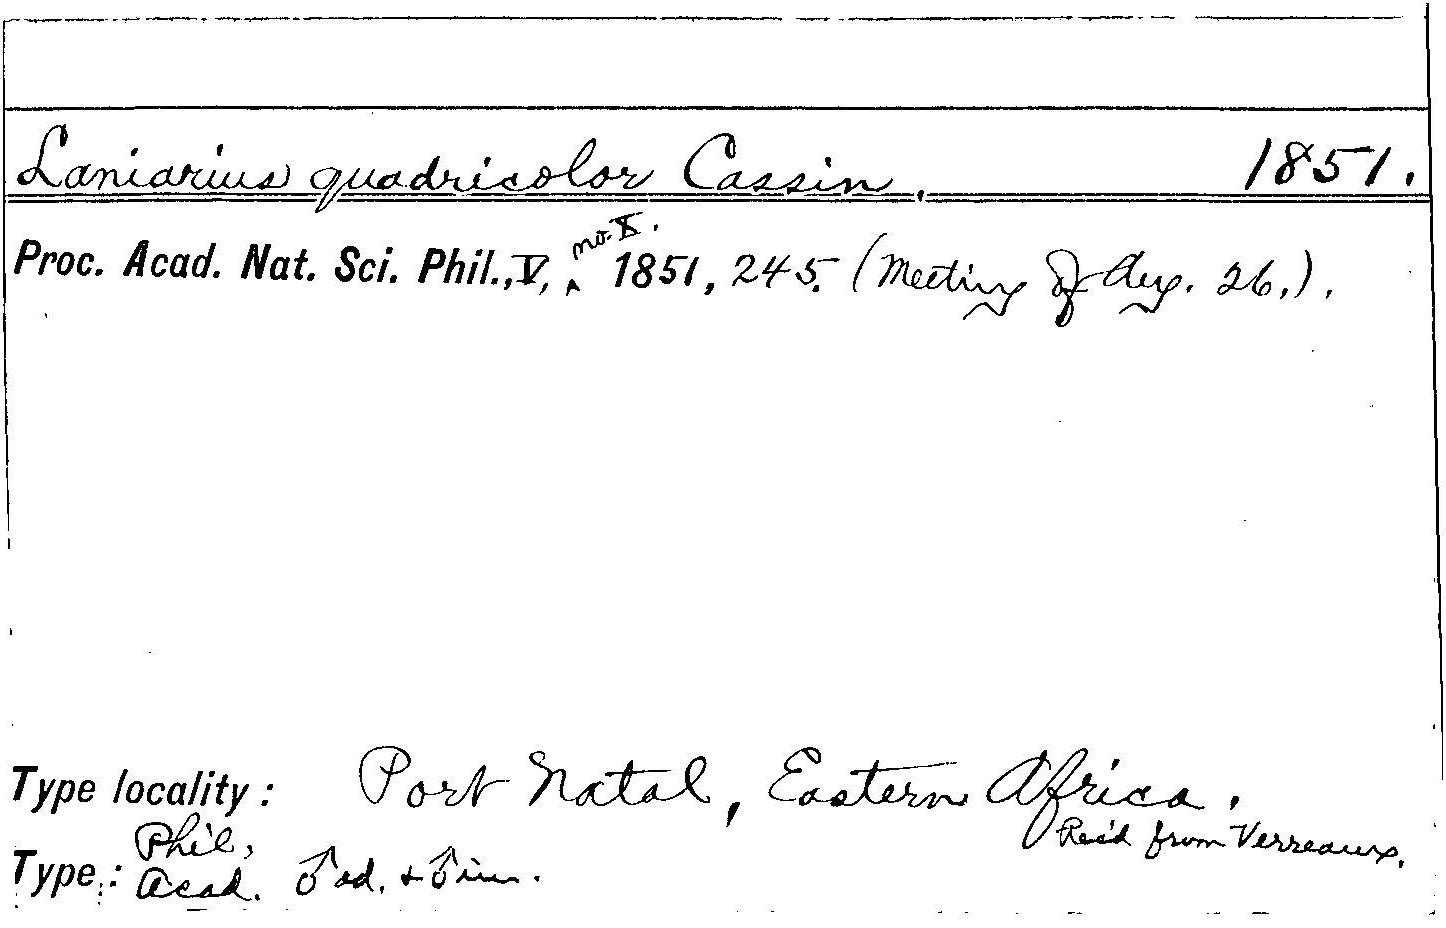 Laniarius quadricolor Cassin. 1851.
no. X.
Proc. Acad. Nat. Sci. Phil., V, ‸ 1851, 245. (Meeting of Aug. 26.).
Type locality: Port Natal, Eastern Africa.
Rec'd from Verreaux.
Phil.
Type: Acad. ♂ ad. + ♂ imm.